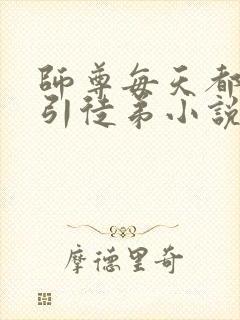 師尊每天都
引徒弟小說
摩德里奇